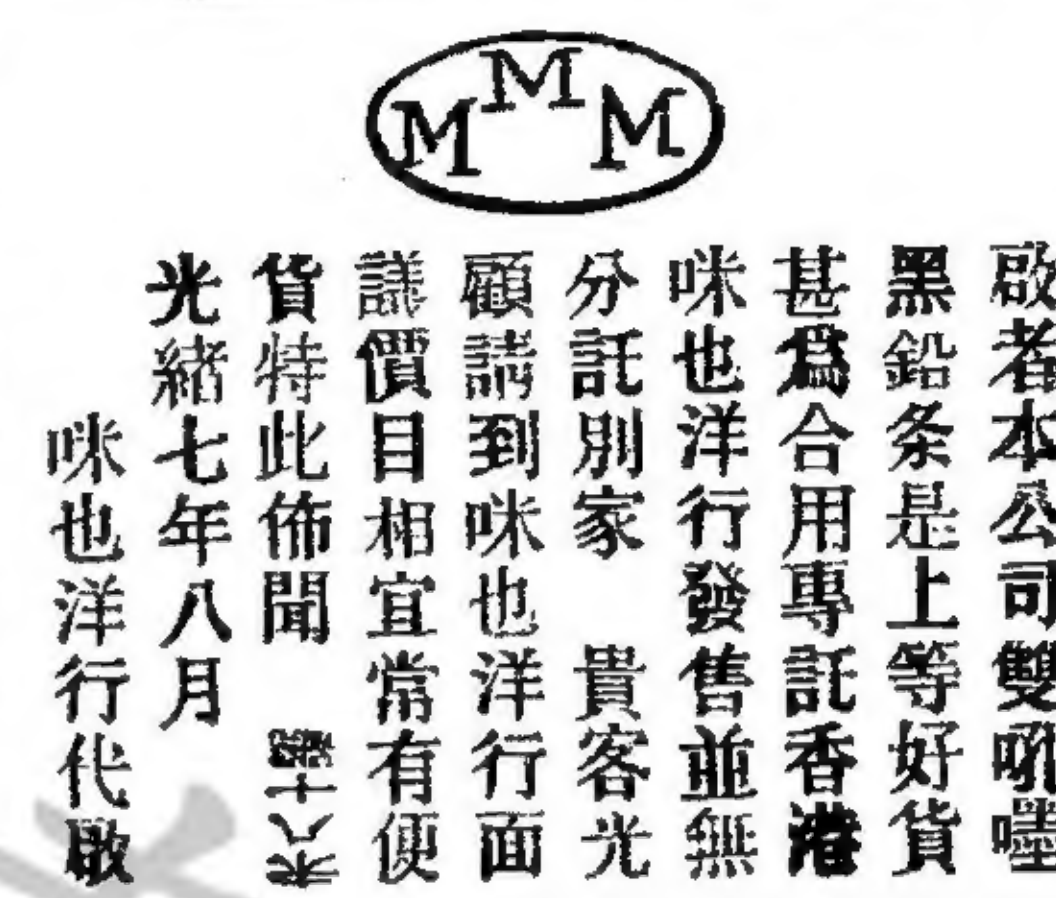 M M M
啟者本公司雙吼嚜
黑鉛条是上等好貨
甚爲合用專託香港
咪也洋行發售並無
分託別家 貴客光
顧請到咪也洋行面
議價目相宜常有便
貨特此佈聞
光緒七年八月
咪也洋行代啟